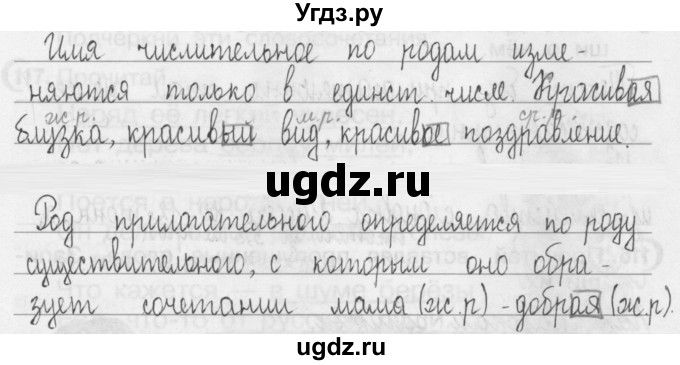 Угдз.ру
Имя числительное по родам изме-
няются только в единст. числе. Красивая
ж.р. м.р. ср.р.
блузка, красивый вид, красивое поздравление.
ugdz.ru
Род прилагательного определяется по роду
существительного, с которым оно обра-
зует сочетании мама (ж.р) - добрая (ж.р).
ugdz.ru